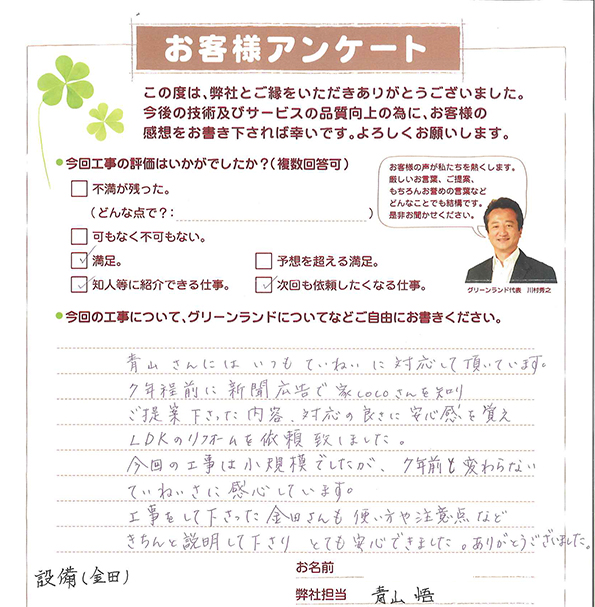 お客様アンケート
この度は、弊社とご縁をいただきありがとうございました。
今後の技術及びサービスの品質向上の為に、お客様の
感想をお書き下されば幸いです。よろしくお願いします。
今回工事の評価はいかがでしたか？（複数回答可）
不満が残った。
（どんな点で？：　）
可もなく不可もない。
満足。
予想を超える満足。
知人等に紹介できる仕事。
次回も依頼したくなる仕事。
お客様の声が私たちを熱くします。
厳しいお言葉、ご提案、
もちろんお誉めの言葉など
どんなことでも結構です。
是非お聞かせください。
グリーンランド代表　川村秀之
今回の工事について、グリーンランドについてなどご自由にお書きください。
青山さんにはいつもていねいに対応して頂いています。
7年程前に新聞広告で家LOCOさんを知り
ご提案下さった内容、対応の良さに安心感を覚え
LDKのリフォームを依頼致しました。
今回の工事は小規模でしたが、7年前と変わらない
ていねいさに感心しています。
工事をして下さった金田さんも使い方や注意点など
きちんと説明して下さり とても安心できました。ありがとうございました。
設備(金田)
お名前
弊社担当　青山 悟